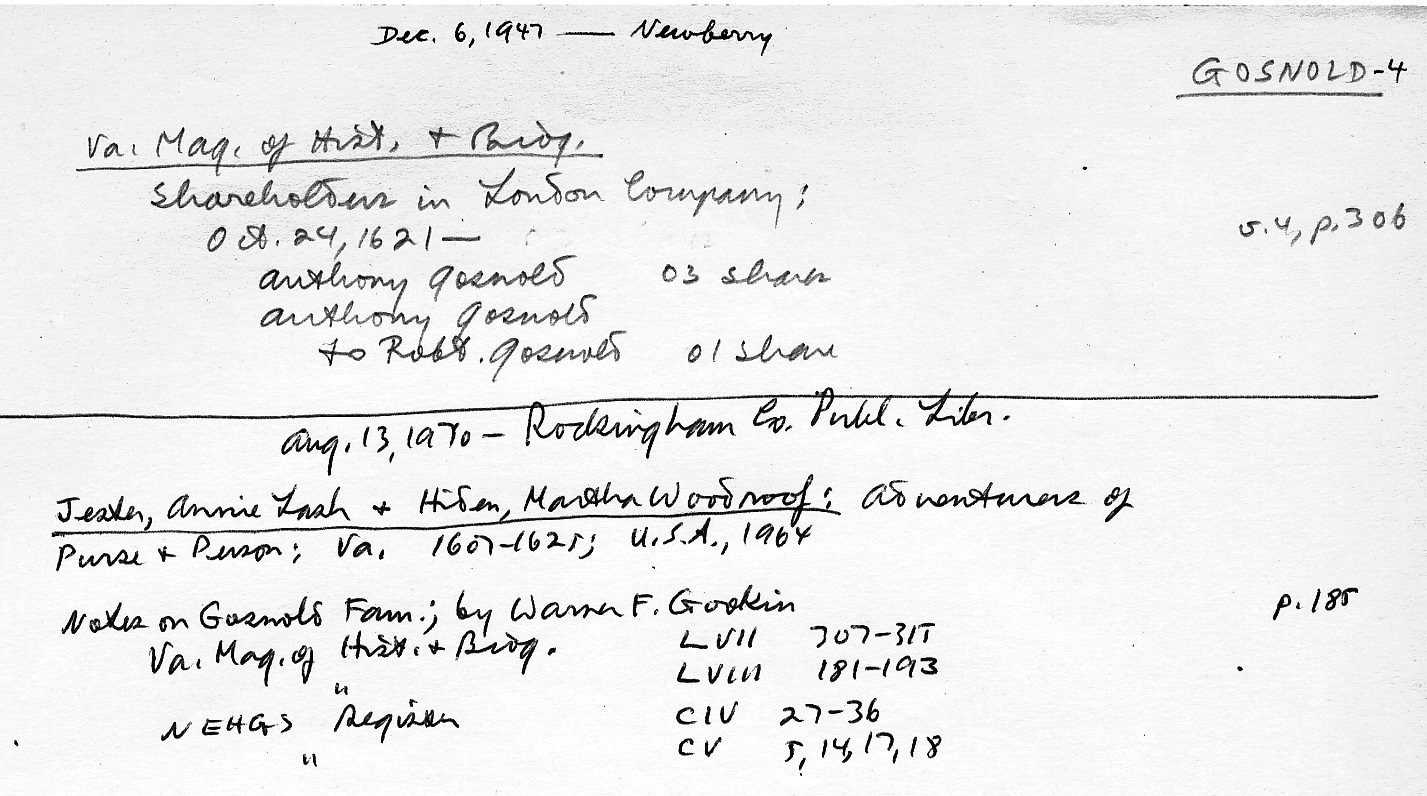 Dec. 6, 1947 — Newberry
GOSNOLD-4
Va. Mag. of Hist. + Biog.
Shareholders in London Company:
Oct. 24, 1621 —
v.4, p.306
Anthony Gosnold 03 shares
Anthony Gosnold
to Robt. Gosnold 01 share
Aug. 13, 1970 — Rockingham Co. Publ. Libr.
Jester, Annie Lash + Hiden, Martha Woodroof: Adventurers of
Purse + Person; Va. 1607-1625; U.S.A., 1964
Notes on Gosnold Fam.; by Warner F. Gookin p.185
Va. Mag. of Hist. + Biog. LVII 307-315
" LVIII 181-193
NEHGS Register CIV 27-36
" CV 5, 14, 17, 18